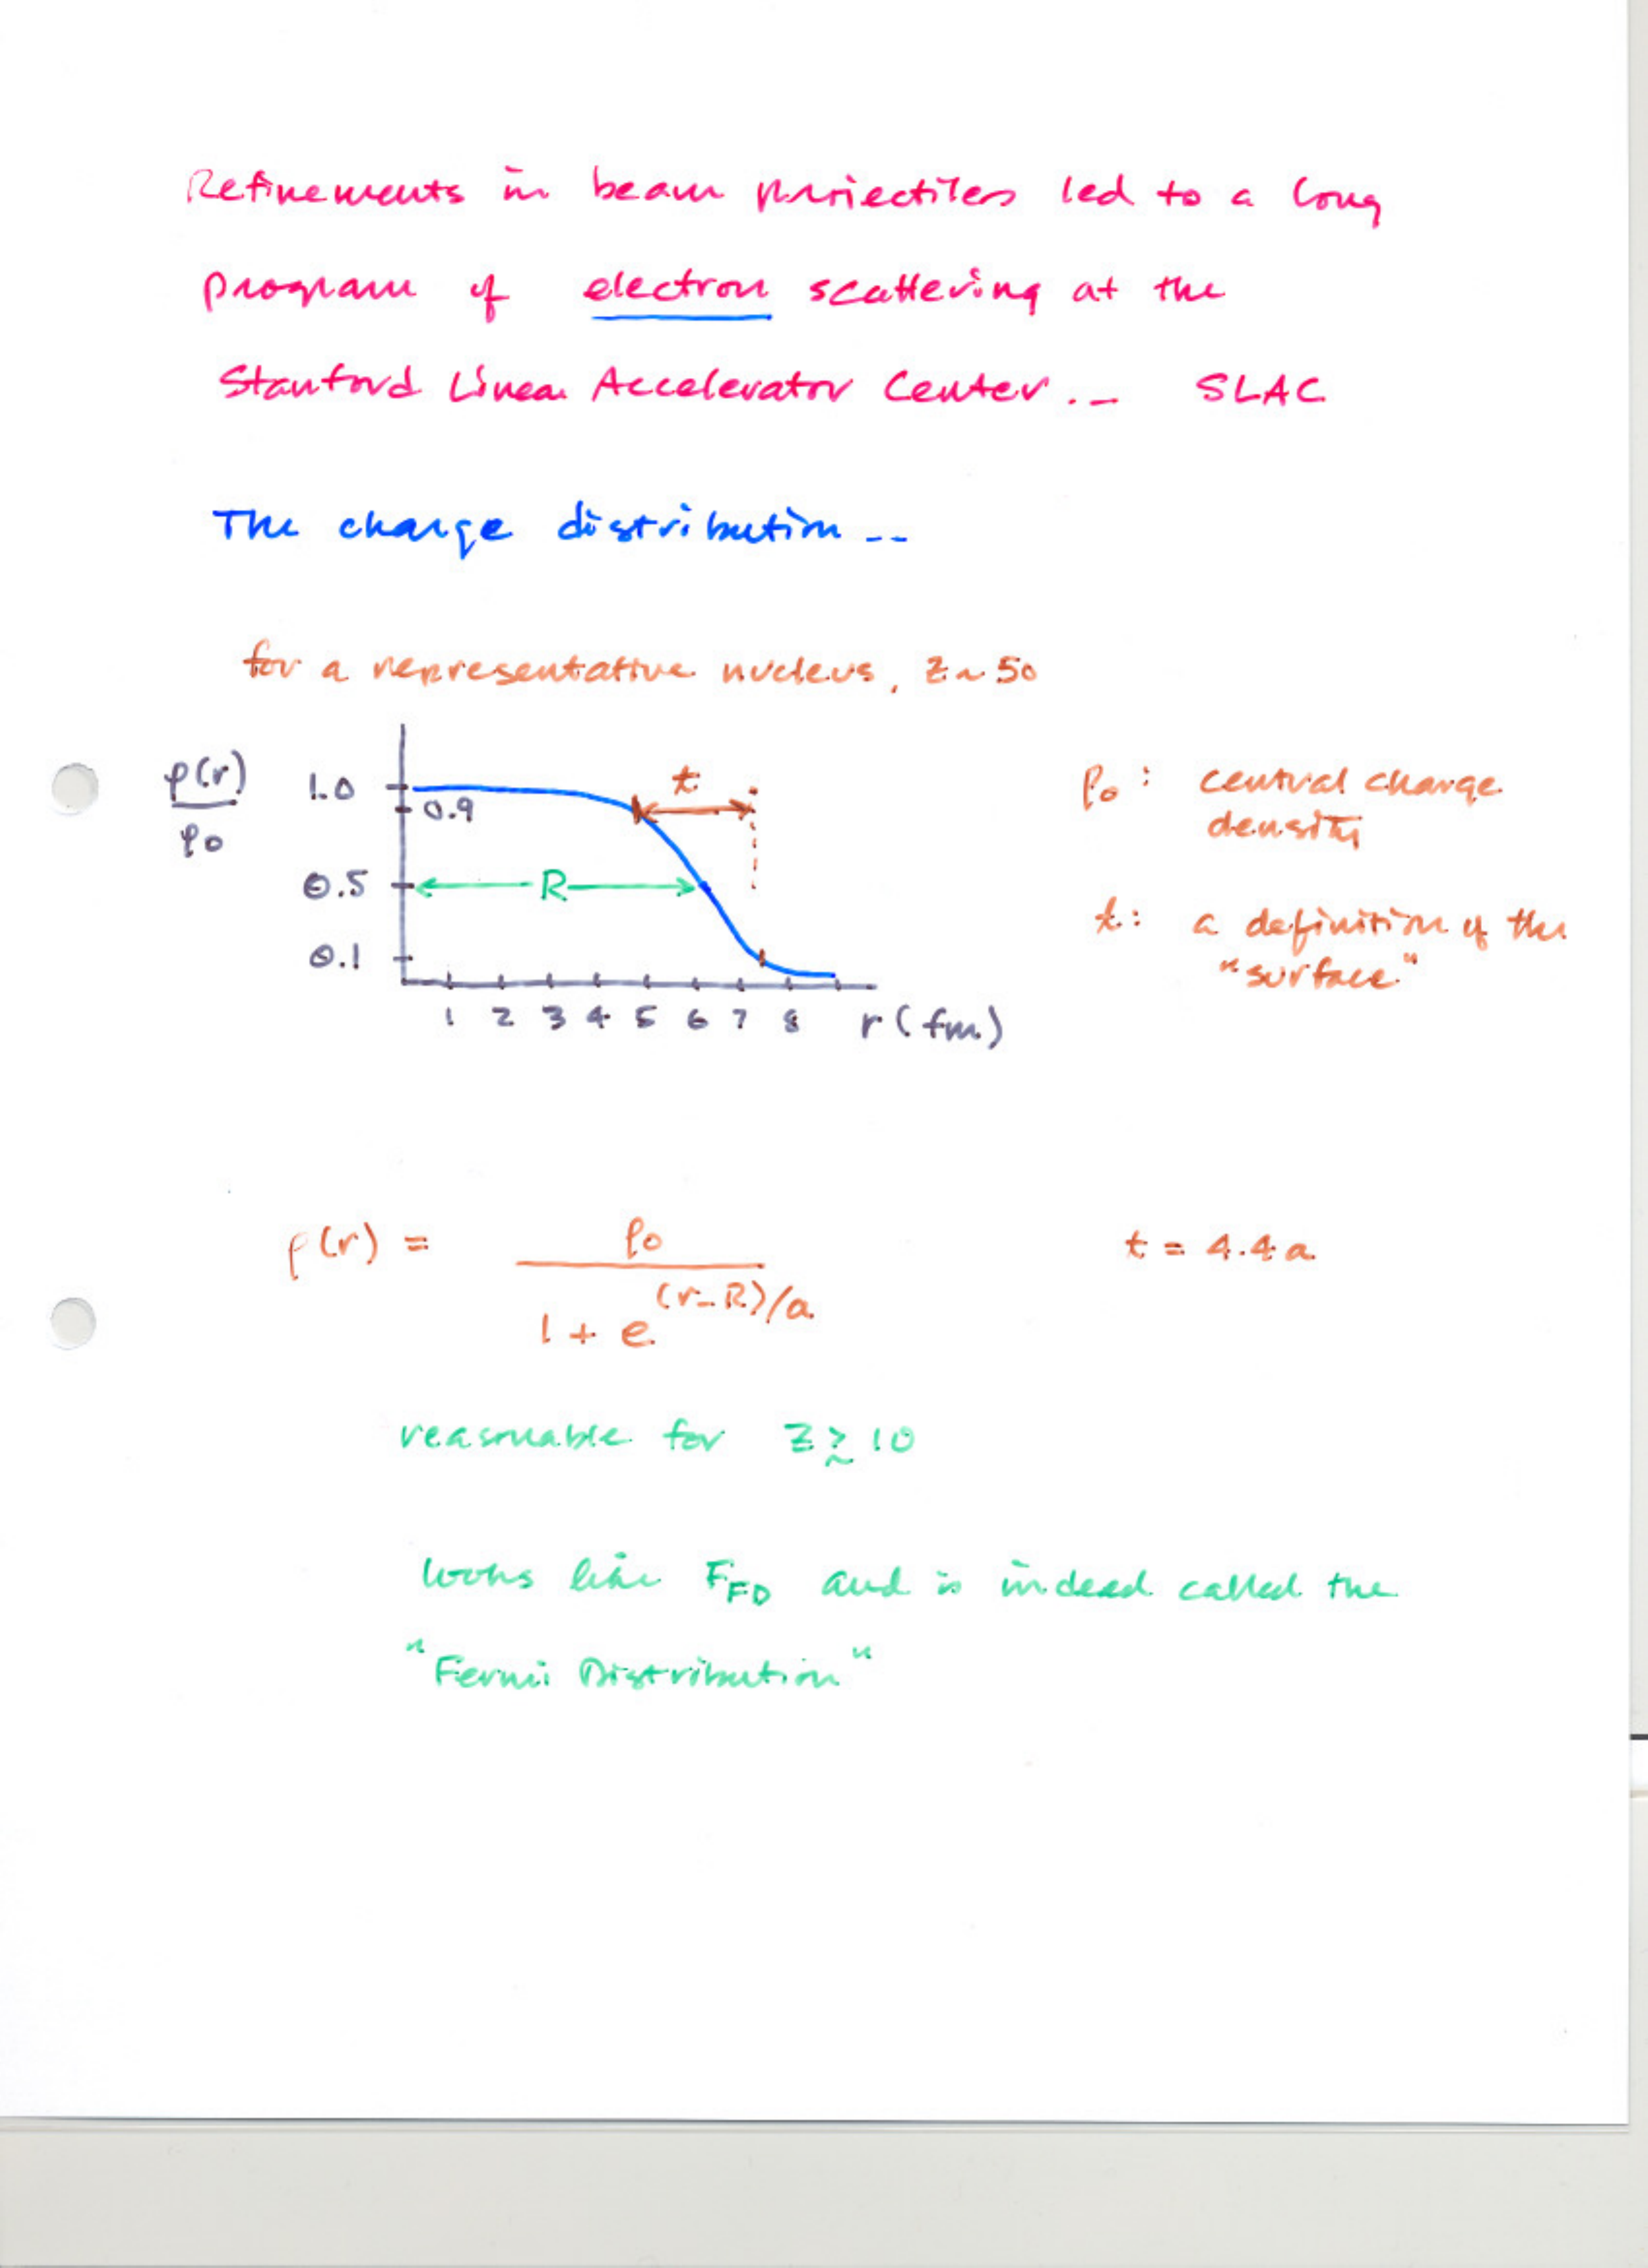 Refinements in beam projectiles led to a long
program of electron scattering at the
Stanford Linear Accelerator Center.. SLAC
The charge distribution --
for a representative nucleus, Z ~ 50
ρ(r)
ρ0
1.0
0.9
0.5
0.1
t
R
1 2 3 4 5 6 7 8 r (fm)
ρ0: central charge
density
t: a definition of the
"surface"
ρ(r) = ρ0 / (1 + e^(r-R)/a)
t = 4.4a
reasonable for Z ≳ 10
looks like F_FD and is indeed called the
"Fermi Distribution"